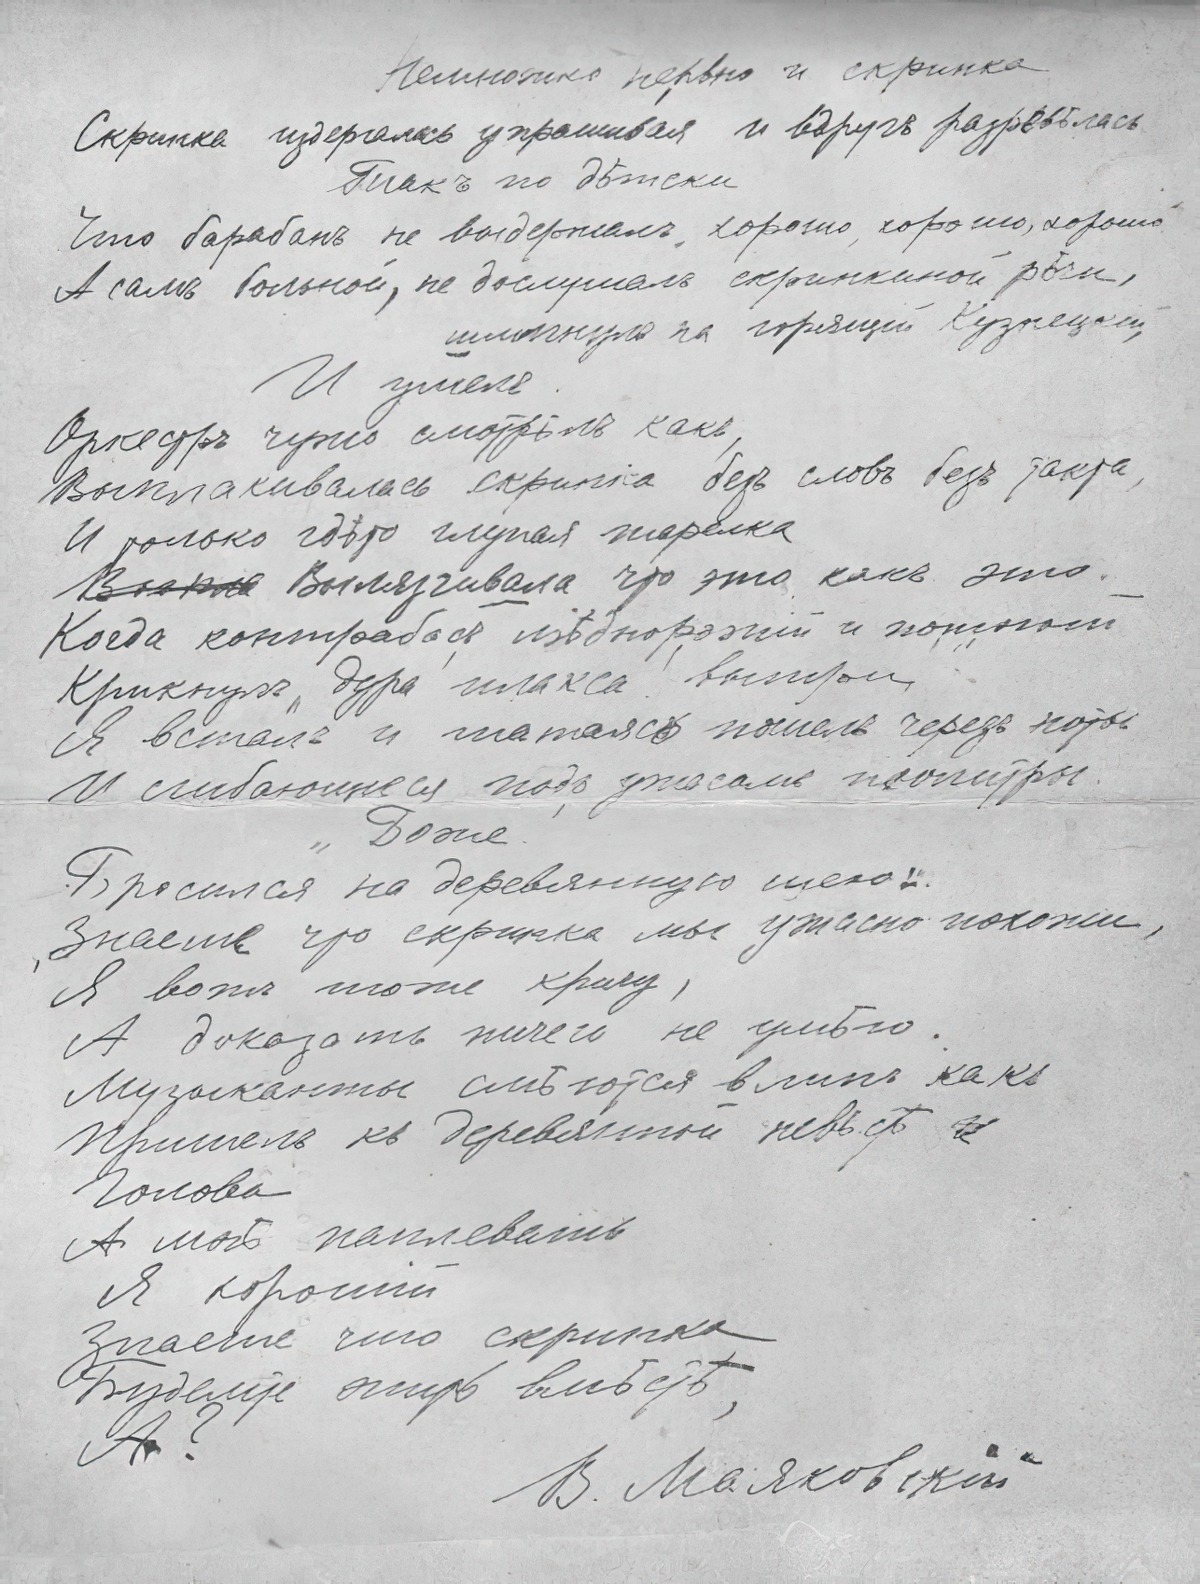 Немножко нервно и скрипка
Скрипка издергалась упрашивая и вдругъ разревѣлась
Такъ по дѣтски
Что барабанъ не выдержалъ, хорошо, хорошо, хорошо
А самъ больной, не дослушалъ скрипкиной рѣчи,
шмыгнулъ на горящій Кузнецкій,
И ушелъ.
Оркестръ чужо смотрѣлъ какъ,
Выплакивалась скрипка безъ словъ безъ такта,
И только гдѣто глупая тарелка
Вылязгивала что это какъ это.
Когда контрабасъ мѣднорожій и потный
Крикнулъ, „дура! плакса! вытри"
Я всталъ и шатаясь пошелъ черезъ ноты
И сгибающиеся подъ ужасомъ пюпитры.
„Боже.
Бросился на деревянную шею:".
„Знаете что скрипка мы ужасно похожи,
Я вотъ тоже кричу,
А доказать ничего не умѣю.
Музыканты смѣются влипъ какъ
Пришелъ къ деревянной невѣстѣ
Голова
А мнѣ наплевать
Я хорошій
Знаете что скрипка
Будемте жить вмѣстѣ,
А?
В. Маяковскій